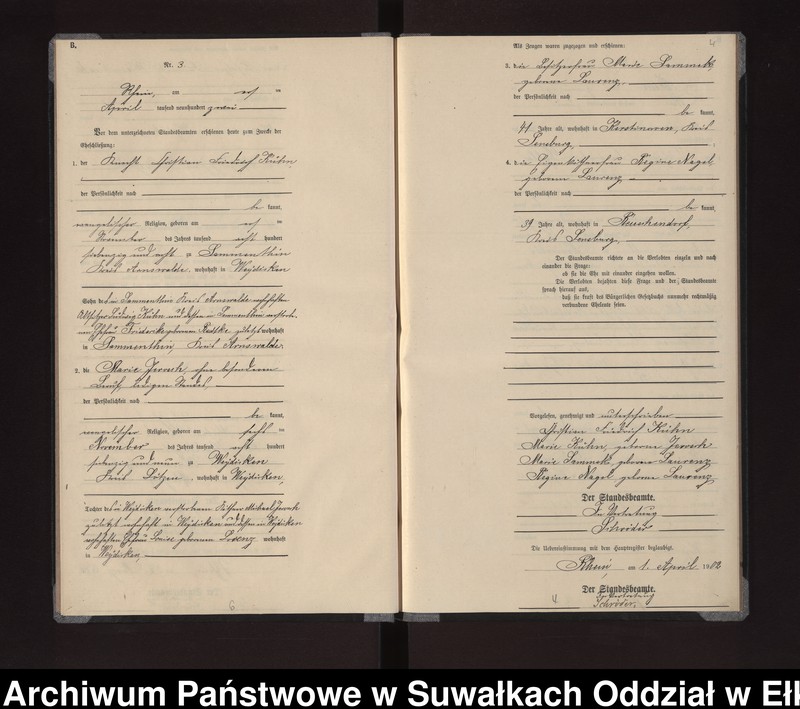 B.
Nr. 3
Rhein, am ersten
April tausend neunhundert zwei
Vor dem unterzeichneten Standesbeamten erschienen heute zum Zweck der
Eheschließung:
1. der Knecht Christian Friedrich Kühn
der Persönlichkeit nach
be kannt,
evangelischer Religion, geboren am ersten
November des Jahres tausend acht hundert
siebenzig und acht zu Sammenthin
Kreis Arnswalde, wohnhaft in Weydicken
Sohn des in Sammenthin Kreis Arnswalde wohnhaften
Altsitzer Ludwig Kühn und dessen in Sammenthin verstorbe-
nen Ehefrau Friederike geborenen Radtke zuletzt wohnhaft
in Sammenthin, Kreis Arnswalde.
2. die Marie Jerosch, ohne besonderen
Beruf, ledigen Standes,
der Persönlichkeit nach
be kannt,
evangelischer Religion, geboren am sechs ten
November des Jahres tausend acht hundert
siebenzig und neun zu Weydicken
Kreis Lötzen, wohnhaft in Weydicken,
Tochter des in Weydicken verstorbenen Michael Jerosch
zuletzt wohnhaft in Weydicken und dessen in Weydicken
wohnhaften Ehefrau Louise geborenen Lorenz wohnhaft
in Weydicken
6
4
Als Zeugen waren zugezogen und erschienen:
3. die Besitzerfrau Marie Sammek
geborene Laurenz,
der Persönlichkeit nach
be kannt,
41 Jahre alt, wohnhaft in Kerstinowen, Kreis
Sensburg,
4. die Eigenkäthnerfrau Regine Nagel
geborene Laurenz,
der Persönlichkeit nach
be kannt,
39 Jahre alt, wohnhaft in
Kreis Sensburg.
Der Standesbeamte richtete an die Verlobten einzeln und nach
einander die Frage:
ob sie die Ehe mit einander eingehen wollen.
Die Verlobten bejahten diese Frage und der Standesbeamte
sprach hierauf aus,
daß sie kraft des Bürgerlichen Gesetzbuchs nunmehr rechtmäßig
verbundene Eheleute seien.
Vorgelesen, genehmigt und unterschrieben
Christian Friedrich Kühn
Marie Kühn, geborene Jerosch
Marie Sammek, geborene Laurenz
Regine Nagel geborene Laurenz
Der Standesbeamte.
In Vertretung
Schröder
Die Uebereinstimmung mit dem Hauptregister beglaubigt.
Rhein am 1. April 1902
Der Standesbeamte.
In Vertretung
Schröder.
Archiwum Państwowe w Suwałkach Oddział w Ełk